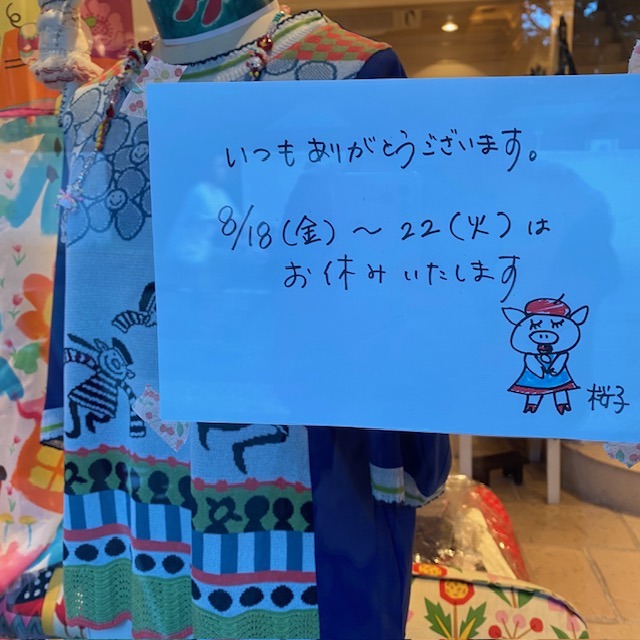 いつもありがとうございます。
8/18(金)～22(火)は
お休みいたします
桜子